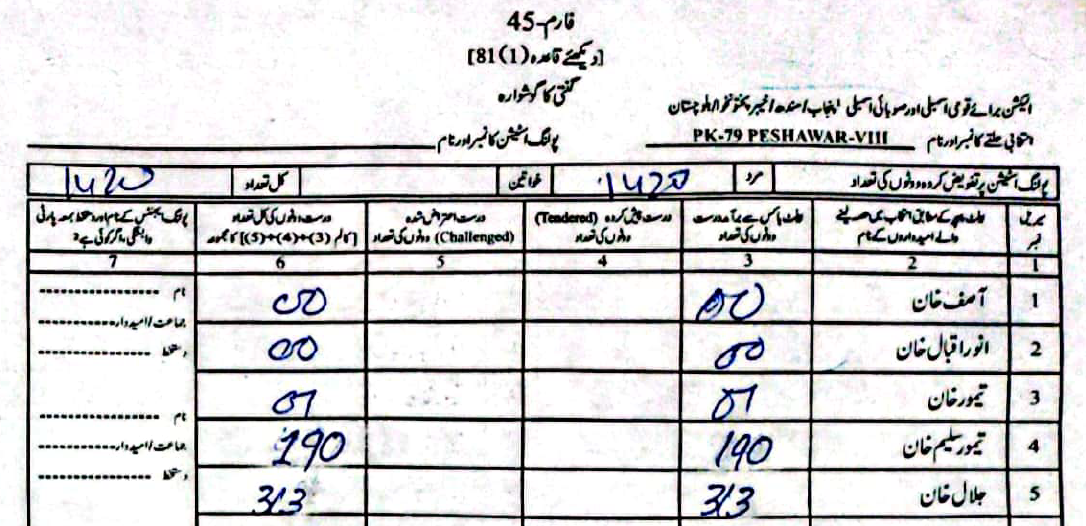 فارم-45
[دیکھئے قاعدہ (1)81]
گنتی کا گوشوارہ
الیکشن برائے قومی اسمبلی اور صوبائی اسمبلی پنجاب/سندھ/خیبر پختونخوا/بلوچستان
انتخابی حلقے کا نمبر اور نام PK-79 PESHAWAR-VIII پولنگ اسٹیشن کا نمبر اور نام
پولنگ اسٹیشن پر تفویض کردہ ووٹوں کی تعداد مرد 1420 خواتین کل تعداد 1420
نمبر
ووٹوں کی تعداد
درست پیش کردہ (Tendered) ووٹوں کی تعداد
درست اعتراض شدہ (Challenged) ووٹوں کی تعداد
درست ووٹوں کی کل تعداد [کالم (3)+(4)+(5) کا مجموعہ]
1 2 3 4 5 6 7
1 آصف خان 00 00 نام
جماعت/امیدوار
2 انور اقبال خان 00 00 دستخط
3 تیمور خان 01 01 نام
4 تیمور سلیم خان 190 190 جماعت/امیدوار
دستخط
5 جلال خان 313 313